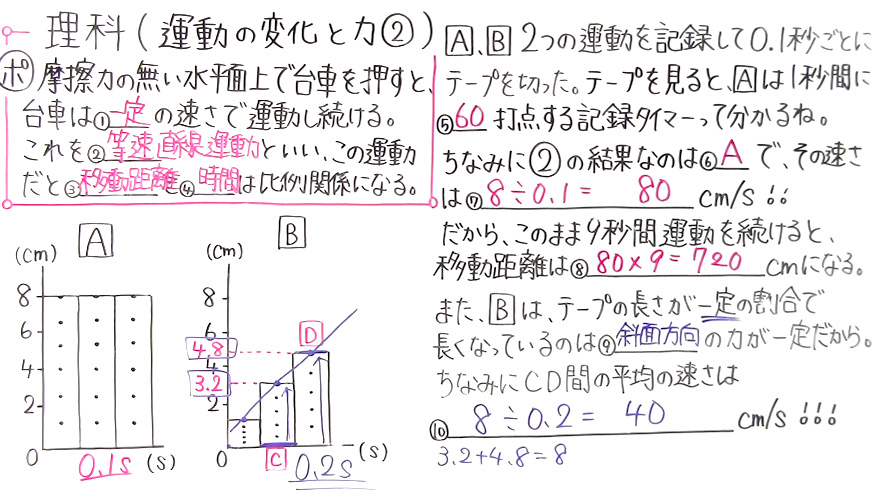 理科(運動の変化と力②)
ポ 摩擦力の無い水平面上で台車を押すと、
台車は①一定の速さで運動し続ける。
これを②等速直線運動といい、この運動
だと③移動距離と④時間は比例関係になる。
A
(cm)
8
6
4
2
0
0.1s (s)
B
(cm)
8
6
4.8
3.2
2
0
D
C
0.2s (s)
A、B 2つの運動を記録して0.1秒ごとに
テープを切った。テープを見ると、Aは1秒間に
⑤60 打点する記録タイマーって分かるね。
ちなみに②の結果なのは⑥Aで、その速さ
は⑦8÷0.1= 80 cm/s!!
だから、このまま9秒間運動を続けると、
移動距離は⑧80×9=720 cmになる。
また、Bは、テープの長さが一定の割合で
長くなっているのは⑨斜面方向の力が一定だから。
ちなみにCD間の平均の速さは
⑩ 8÷0.2= 40 cm/s!!!
3.2+4.8=8